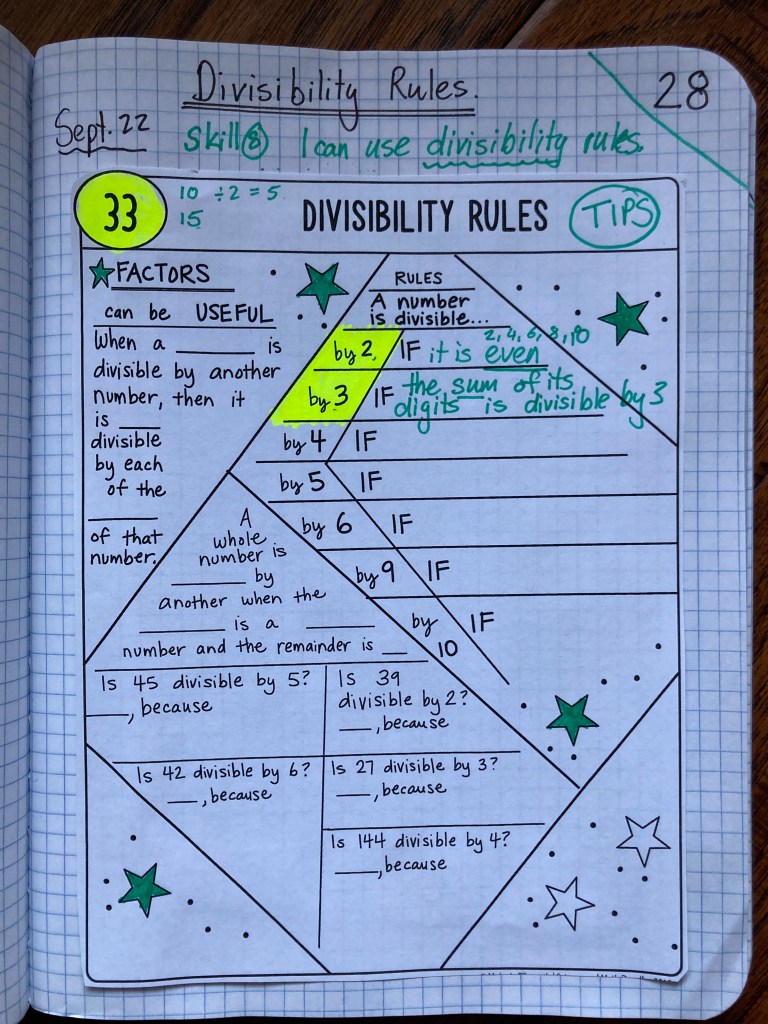 Divisibility Rules.
28
Sept. 22
Skill 8 I can use divisibility rules.
33
10 ÷ 2 = 5
15
DIVISIBILITY RULES
TIPS
FACTORS
can be USEFUL
When a ______ is
divisible by another
number, then it
is ____
divisible
by each
of the
______
of that
number.
RULES
A number
is divisible...
2, 4, 6, 8, 10
by 2, IF it is even
by 3 IF the sum of its
digits is divisible by 3
by 4 IF
by 5 IF
by 6 IF
by 9 IF
by IF
10
A
whole
number is
______ by
another when the
______ is a ______
number and the remainder is __
Is 45 divisible by 5?
____, because
Is 39
divisible by 2?
___, because
Is 42 divisible by 6?
___, because
Is 27 divisible by 3?
___, because
Is 144 divisible by 4?
____, because